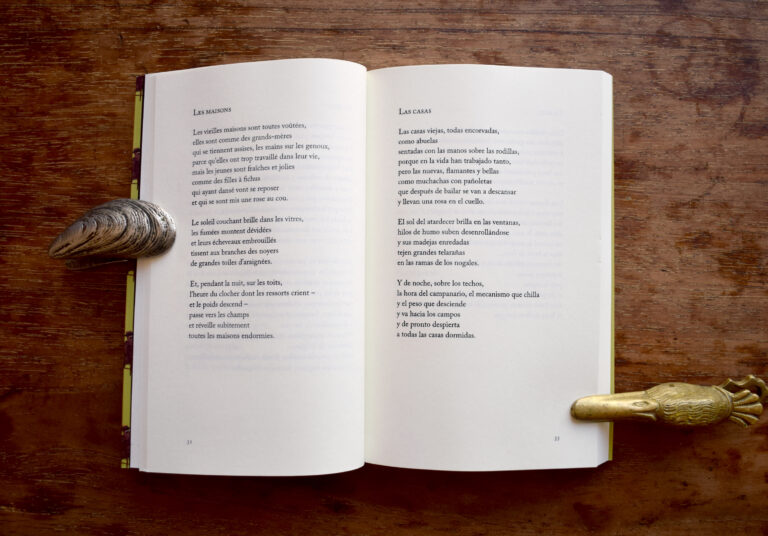 LES MAISONS
Les vieilles maisons sont toutes voûtées,
elles sont comme des grands-mères
qui se tiennent assises, les mains sur les genoux,
parce qu'elles ont trop travaillé dans leur vie,
mais les jeunes sont fraîches et jolies
comme des filles à fichus
qui ayant dansé vont se reposer
et qui se sont mis une rose au cou.
Le soleil couchant brille dans les vitres,
les fumées montent dévidées
et leurs écheveaux embrouillés
tissent aux branches des noyers
de grandes toiles d'araignées.
Et, pendant la nuit, sur les toits,
l'heure du clocher dont les ressorts crient –
et le poids descend –
passe vers les champs
et réveille subitement
toutes les maisons endormies.
LAS CASAS
Las casas viejas, todas encorvadas,
como abuelas
sentadas con las manos sobre las rodillas,
porque en la vida han trabajado tanto,
pero las nuevas, flamantes y bellas
como muchachas con pañoletas
que después de bailar se van a descansar
y llevan una rosa en el cuello.
El sol del atardecer brilla en las ventanas,
hilos de humo suben desenrollándose
y sus madejas enredadas
tejen grandes telarañas
en las ramas de los nogales.
Y de noche, sobre los techos,
la hora del campanario, el mecanismo que chilla
y el peso que desciende
y va hacia los campos
y de pronto despierta
a todas las casas dormidas.